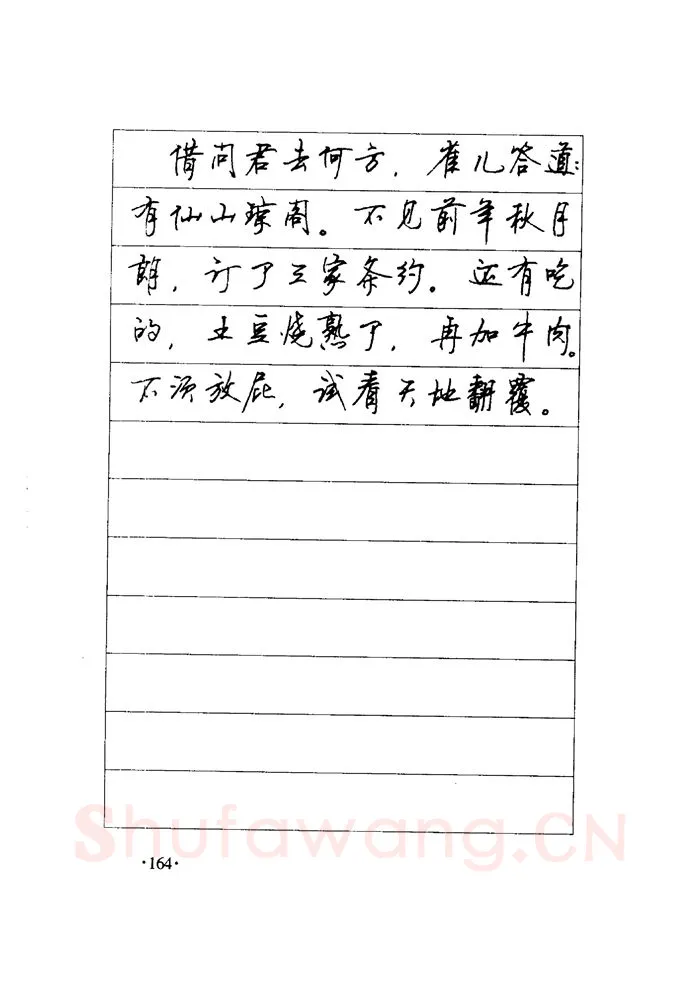 借问君去何方，雀儿答道：
有仙山琼阁。不见前年秋月
朗，订了三家条约。还有吃
的，土豆烧熟了，再加牛肉。
不须放屁，试看天地翻覆。
Shufawang.CN
·164·